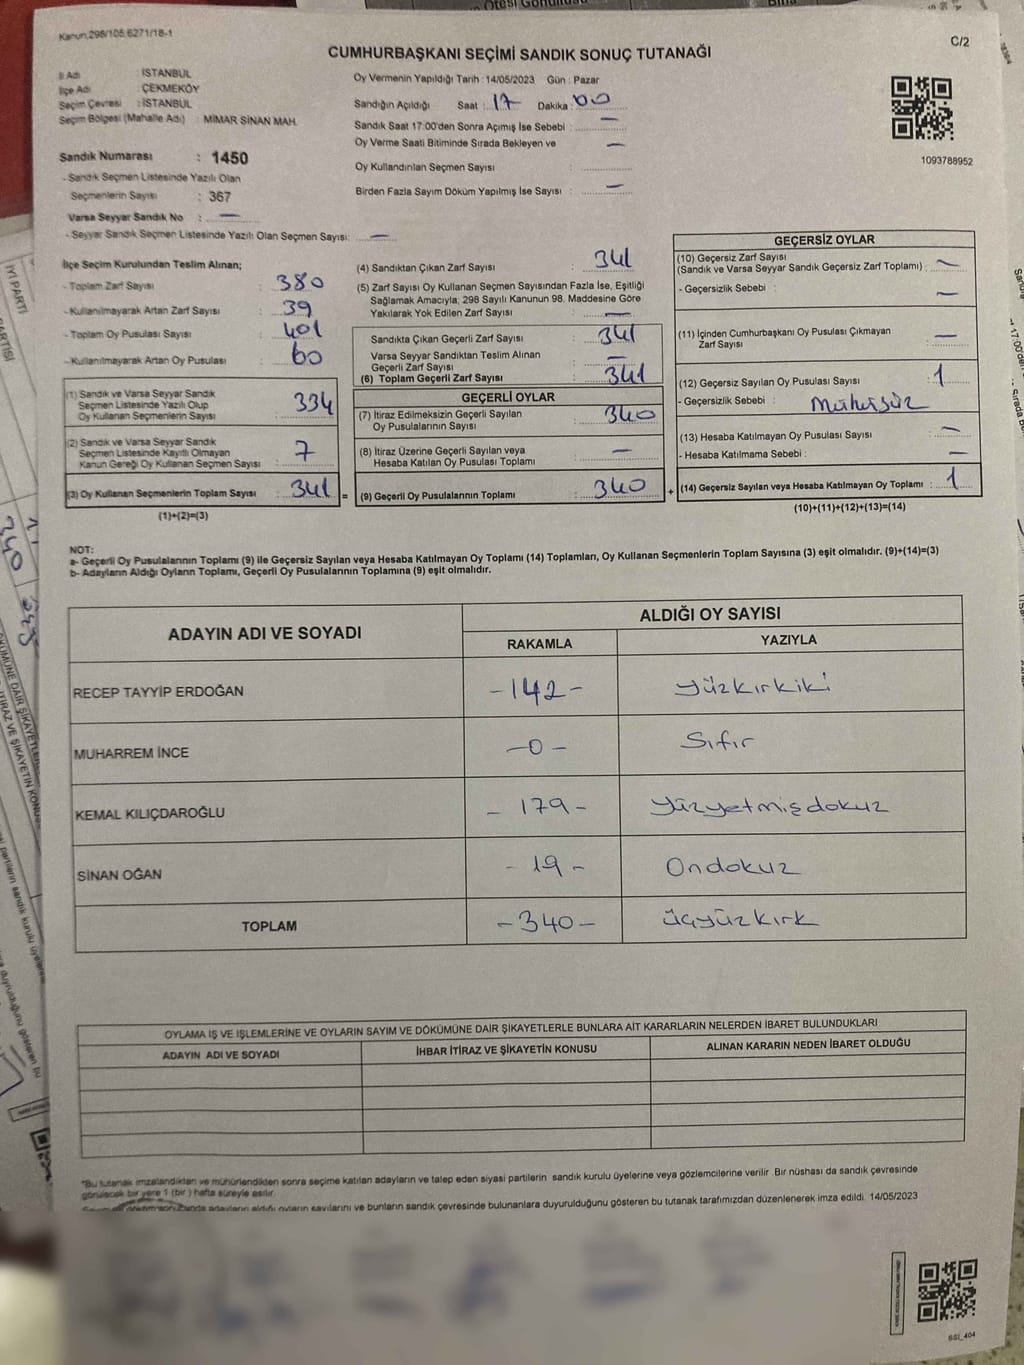 Kanun,298/105;6271/18-1
C/2
CUMHURBAŞKANI SEÇİMİ SANDIK SONUÇ TUTANAĞI
İl Adı : İSTANBUL
İlçe Adı : ÇEKMEKÖY
Seçim Çevresi : İSTANBUL
Seçim Bölgesi (Mahalle Adı) : MİMAR SİNAN MAH.
Oy Vermenin Yapıldığı Tarih : 14/05/2023 Gün : Pazar
Sandığın Açıldığı Saat : 17 Dakika : 00
Sandık Saat 17:00'den Sonra Açımış İse Sebebi : —
Oy Verme Saati Bitiminde Sırada Bekleyen ve —
Oy Kullandırılan Seçmen Sayısı :
Birden Fazla Sayım Döküm Yapılmış İse Sayısı : —
1093788952
Sandık Numarası : 1450
- Sandık Seçmen Listesinde Yazılı Olan
Seçmenlerin Sayısı : 367
Varsa Seyyar Sandık No : —
- Seyyar Sandık Seçmen Listesinde Yazılı Olan Seçmen Sayısı: —
İlçe Seçim Kurulundan Teslim Alınan;
- Toplam Zarf Sayısı : 380
- Kullanılmayarak Artan Zarf Sayısı : 39
- Toplam Oy Pusulası Sayısı : 401
- Kullanılmayarak Artan Oy Pusulası : 60
(1) Sandık ve Varsa Seyyar Sandık
Seçmen Listesinde Yazılı Olup
Oy Kullanan Seçmenlerin Sayısı : 334
(2) Sandık ve Varsa Seyyar Sandık
Seçmen Listesinde Kayıtlı Olmayan
Kanun Gereği Oy Kullanan Seçmen Sayısı : 7
(3) Oy Kullanan Seçmenlerin Toplam Sayısı : 341 =
(1)+(2)=(3)
(4) Sandıktan Çıkan Zarf Sayısı : 341
(5) Zarf Sayısı Oy Kullanan Seçmen Sayısından Fazla İse, Eşitliği
Sağlamak Amacıyla; 298 Sayılı Kanunun 98. Maddesine Göre
Yakılarak Yok Edilen Zarf Sayısı : —
Sandıkta Çıkan Geçerli Zarf Sayısı : 341
Varsa Seyyar Sandıktan Teslim Alınan —
Geçerli Zarf Sayısı :
(6) Toplam Geçerli Zarf Sayısı : 341
GEÇERLİ OYLAR
(7) İtiraz Edilmeksizin Geçerli Sayılan : 340
Oy Pusulalarının Sayısı
(8) İtiraz Üzerine Geçerli Sayılan veya : —
Hesaba Katılan Oy Pusulası Toplamı
(9) Geçerli Oy Pusulalarının Toplamı : 340 +
GEÇERSİZ OYLAR
(10) Geçersiz Zarf Sayısı
(Sandık ve Varsa Seyyar Sandık Geçersiz Zarf Toplamı) : —
- Geçersizlik Sebebi : —
(11) İçinden Cumhurbaşkanı Oy Pusulası Çıkmayan
Zarf Sayısı : —
(12) Geçersiz Sayılan Oy Pusulası Sayısı : 1
- Geçersizlik Sebebi : Mühürsüz
(13) Hesaba Katılmayan Oy Pusulası Sayısı : —
- Hesaba Katılmama Sebebi : —
(14) Geçersiz Sayılan veya Hesaba Katılmayan Oy Toplamı : 1
(10)+(11)+(12)+(13)=(14)
NOT:
a- Geçerli Oy Pusulalarının Toplamı (9) ile Geçersiz Sayılan veya Hesaba Katılmayan Oy Toplamı (14) Toplamları, Oy Kullanan Seçmenlerin Toplam Sayısına (3) eşit olmalıdır. (9)+(14)=(3)
b- Adayların Aldığı Oyların Toplamı, Geçerli Oy Pusulalarının Toplamına (9) eşit olmalıdır.
ADAYIN ADI VE SOYADI
ALDIĞI OY SAYISI
RAKAMLA YAZIYLA
RECEP TAYYİP ERDOĞAN -142- yüzkırkiki
MUHARREM İNCE -0- Sıfır
KEMAL KILIÇDAROĞLU - 179 - Yüzyetmişdokuz
SİNAN OĞAN - 19 - Ondokuz
TOPLAM -340- üçyüzkırk
OYLAMA İŞ VE İŞLEMLERİNE VE OYLARIN SAYIM VE DÖKÜMÜNE DAİR ŞİKAYETLERLE BUNLARA AİT KARARLARIN NELERDEN İBARET BULUNDUKLARI
ADAYIN ADI VE SOYADI
İHBAR İTİRAZ VE ŞİKAYETİN KONUSU
ALINAN KARARIN NEDEN İBARET OLDUĞU
*Bu tutanak imzalandıktan ve mühürlendikten sonra seçime katılan adayların ve talep eden siyasi partilerin sandık kurulu üyelerine veya gözlemcilerine verilir .Bir nüshası da sandık çevresinde
görülecek bir yere 1 (bir ) hafta süreyle asılır.
adayların aldığı oyların sayılarını ve bunların sandık çevresinde bulunanlara duyurulduğunu gösteren bu tutanak tarafımızdan düzenlenerek imza edildi. 14/05/2023
SSİ_404
İYİ PARTİ